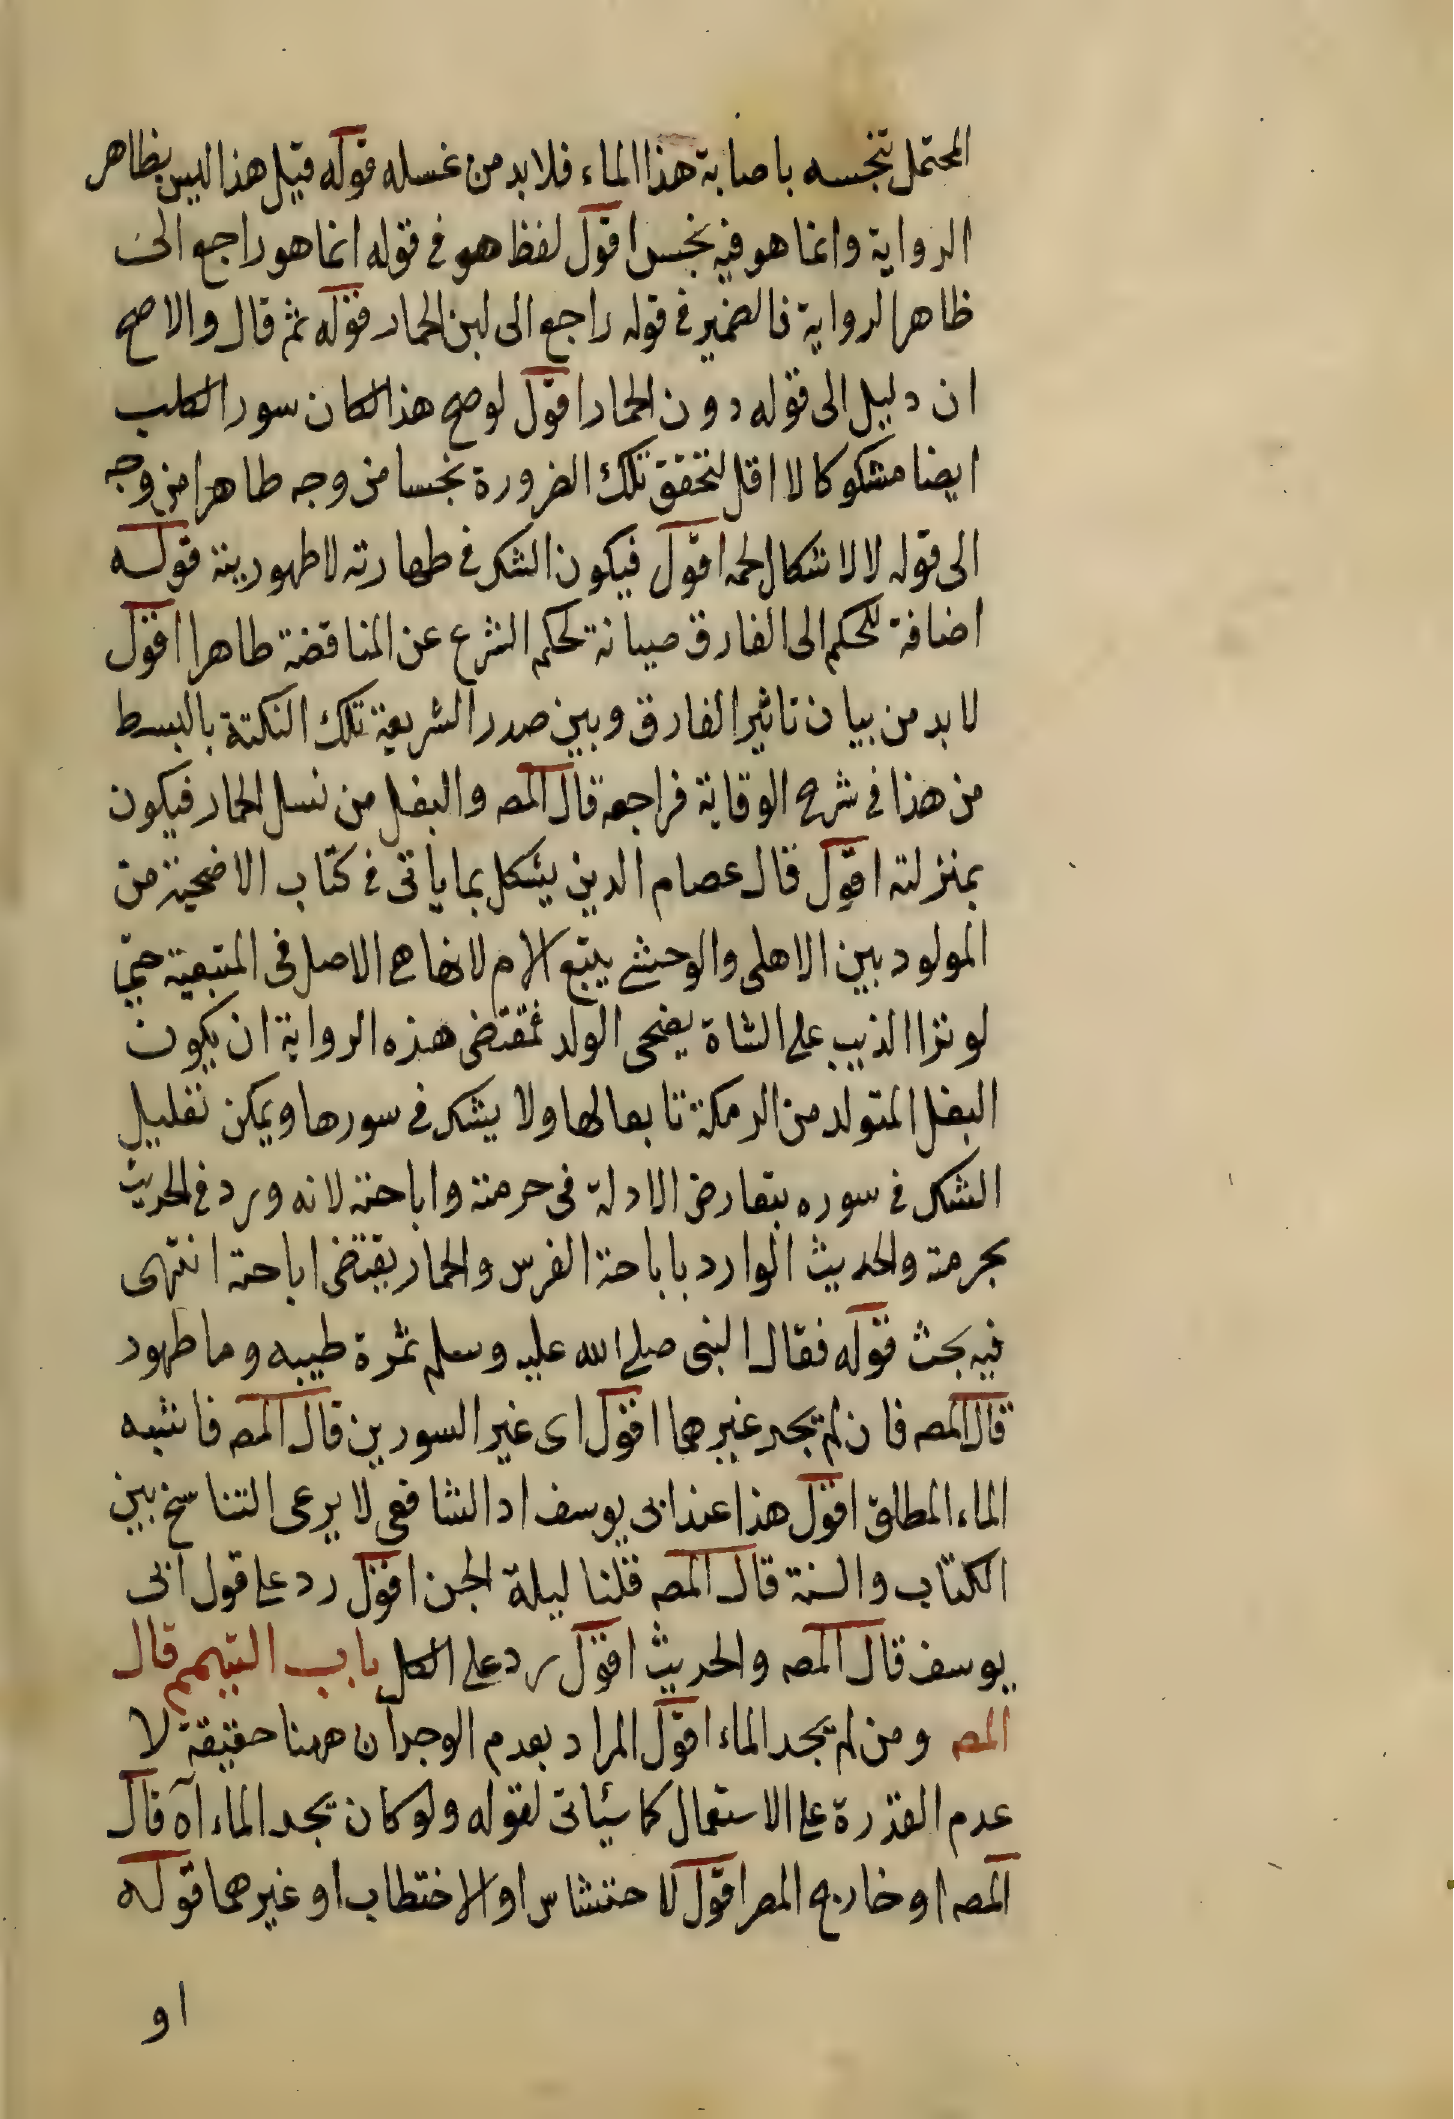 المحتمل تنجسه باصابة هذا الماء فلا بد من غسله قوله قيل هذا ليس بظاهر
الرواية وانما هو فيه نجس اقول لفظ هو في قوله انما هو راجع الى
ظاهر الرواية فالضمير في قوله راجع الى لبن الحمار قوله ثم قال والاصح
ان دليل الى قوله دون الحمار اقول لو صح هذا لكان سور الكلب
ايضا مشكوكا لا اقل لتحقق تلك الضرورة نجسا من وجه طاهرا من وجه
الى قوله لا لاشكال لحمه اقول فيكون الشك في طهارته لا طهوريته قوله
اضافة للحكم الى الفارق صيانة لحكم الشرع عن المناقضة ظاهرا اقول
لا بد من بيان تاثير الفارق وبين صدر الشريعة تلك النكتة بالبسط
من هذا في شرح الوقاية فراجعه قال المص والبغل من نسل الحمار فيكون
بمنزلته اقول قال عصام الدين يشكل بما ياتي في كتاب الاضحية من
المولود بين الاهلي والوحشي يتبع الام لانها هي الاصل في التبعية حتى
لو نزا الذيب على الشاة يضحى الولد فمقتضى هذه الرواية ان يكون
البغل المتولد من الرمكة تابعا لها ولا يشك في سورها ويمكن تعليل
الشك في سوره بتعارض الادلة في حرمته واباحته لانه ورد في الحديث
بحرمته والحديث الوارد باباحة الفرس والحمار يقتضى اباحته انتهى
فيه بحث قوله فقال النبي صلى الله عليه وسلم ثمرة طيبه وما طهور
قال المص فان لم يجد غيرهما اقول اى غير السورين قال المص فاشبه
الماء المطلق اقول هذا عند ابى يوسف اد الشافعي لا يرعى التناسخ بين
الكتاب والسنة قال المص قلنا ليلة الجن اقول رد على قول ابى
يوسف قال المص والحديث اقول رد على الكل باب التيمم قال
المص ومن لم يجد الماء اقول المراد بعدم الوجدان ههنا حقيقة لا
عدم القدرة على الاستعمال كما سيأتى لقوله ولو كان يجد الماء آه قال
المص او خارج المصر اقول للاحتشاش او الاحتطاب او غيرهما قوله
او